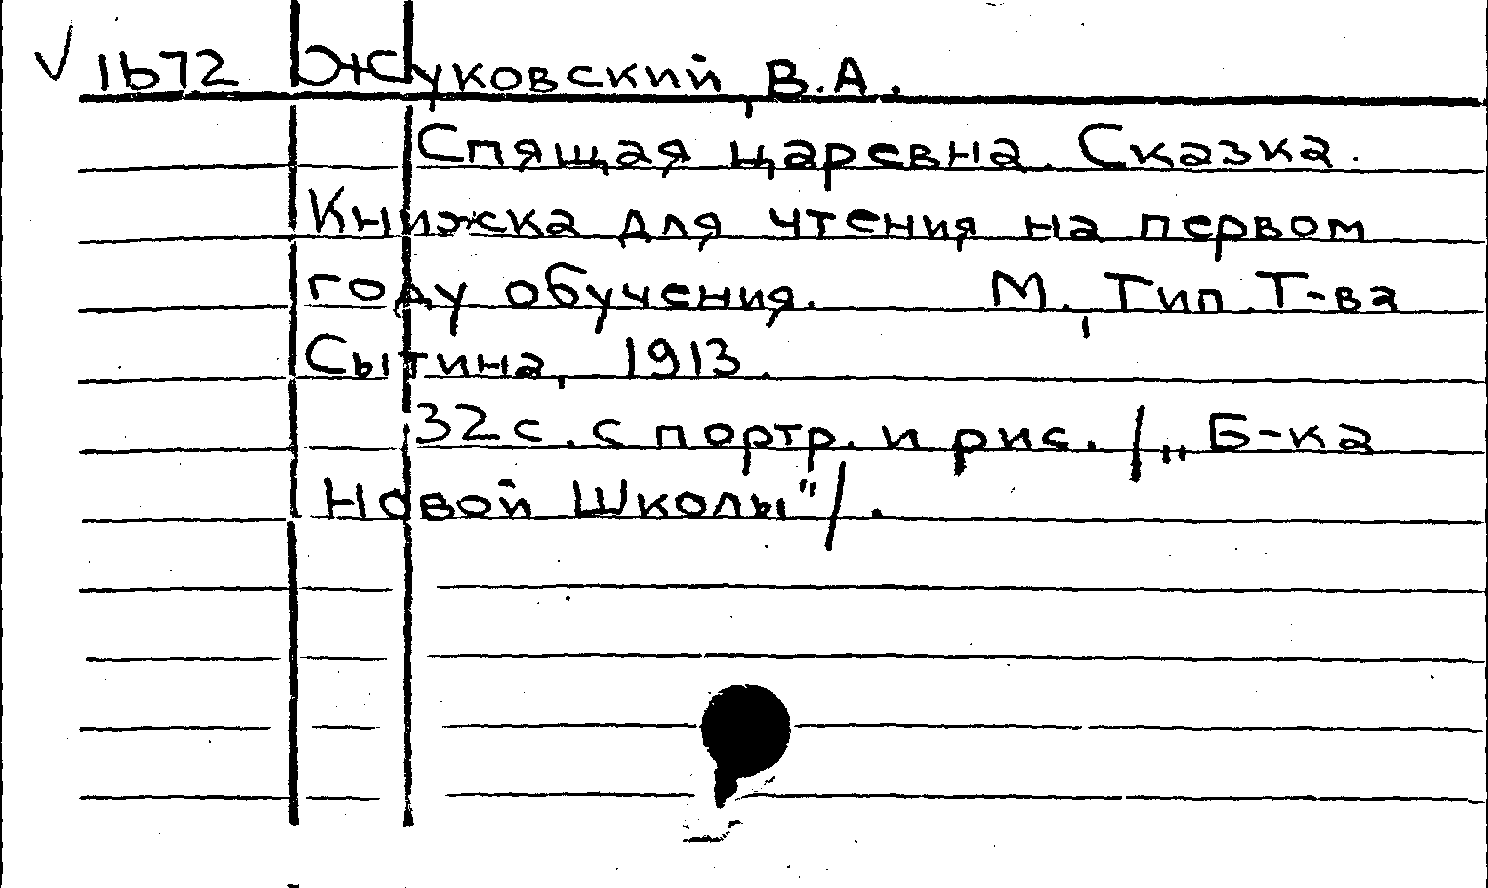 1b72 Жуковский, В.А.
Спящая царевна. Сказка.
Книжка для чтения на первом
году обучения. М., Тип. Т-ва
Сытина, 1913.
32с. с портр. и рис. /„Б-ка
Новой Школы"/.